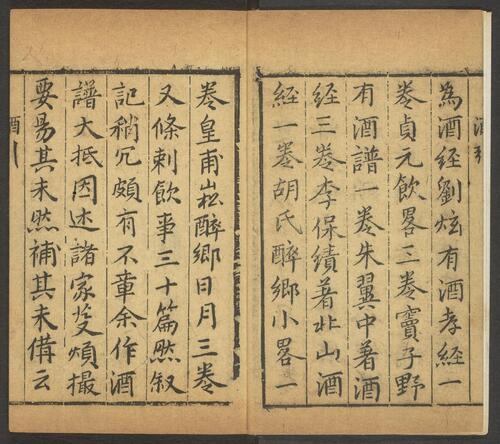 為酒經劉炫有酒孝經一
卷貞元飲畧三卷竇子野
有酒譜一卷朱翼中著酒
經三卷李保績著北山酒
經一卷胡氏醉鄉小畧一
卷皇甫崧醉鄉日月三卷
又條刺飲事三十篇然叙
記稍冗頗有不章余作酒
譜大抵因述諸家芟煩撮
要易其未然補其未備云